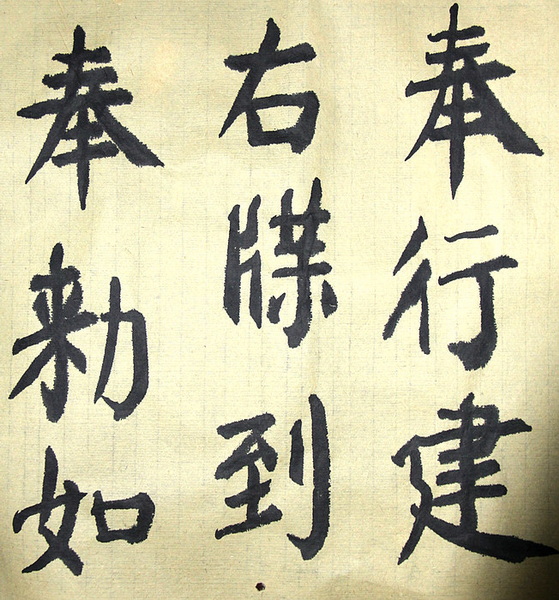 奉行建
右牒到
奉勑如